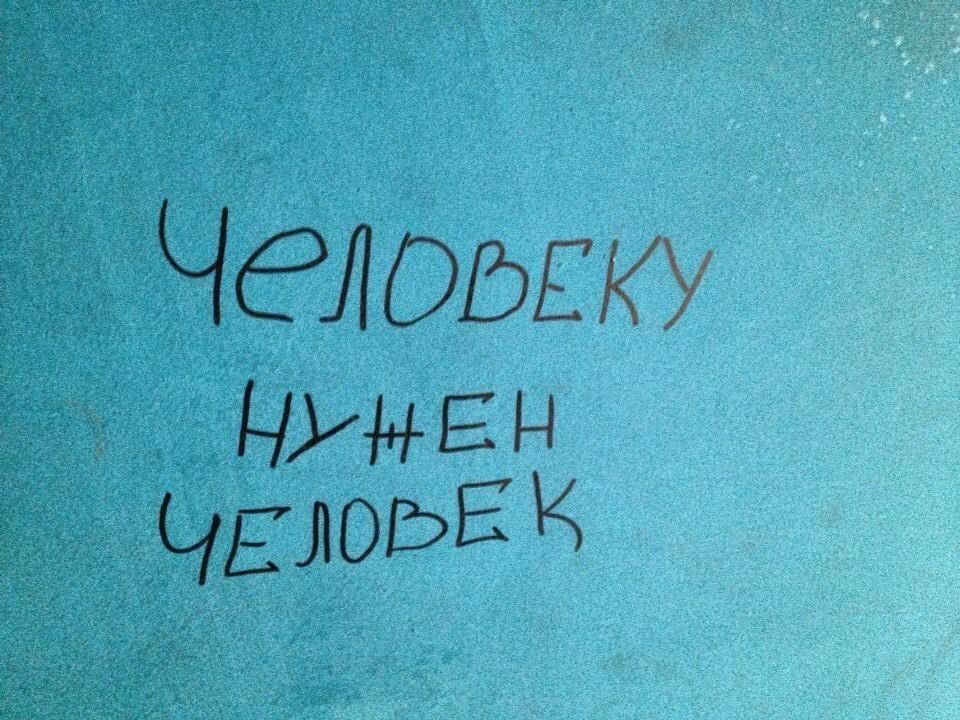 ЧеЛОВЕКУ
НУЖЕН
ЧЕЛОВЕК